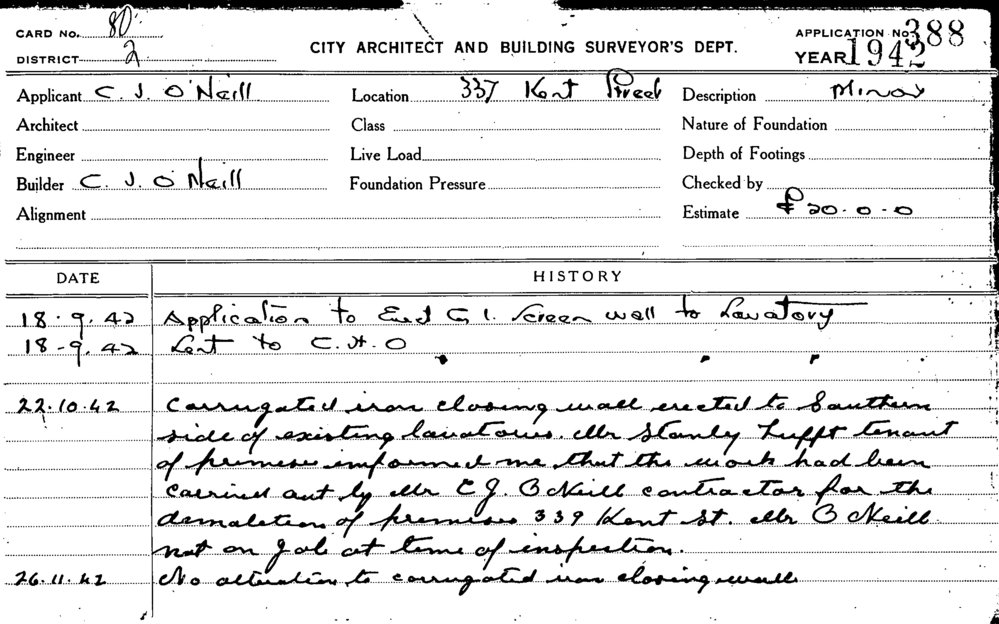 CARD No. 80
DISTRICT 2
CITY ARCHITECT AND BUILDING SURVEYOR'S DEPT.
APPLICATION No. 388
YEAR 1942
Applicant C. J. O'Neill
Location 337 Kent Street
Description Minor
Architect
Class
Nature of Foundation
Engineer
Live Load
Depth of Footings
Builder C. J. O'Neill
Foundation Pressure
Checked by
Alignment
Estimate £20-0-0
DATE HISTORY
18.9.42 Application to Erect G I. Screen wall to Lavatory
18-9.42 Sent to C.H.O
22.10.42 Corrugated iron closing wall erected to Southern
side of existing lavatories. Mr Stanly Tufft tenant
of premises informed me that the work had been
carried out by Mr C J. O'Neill contractor for the
demoletion of premises 339 Kent St. Mr O'Neill
not on job at time of inspection.
26.11.42 No alteration to corrugated iron closing wall